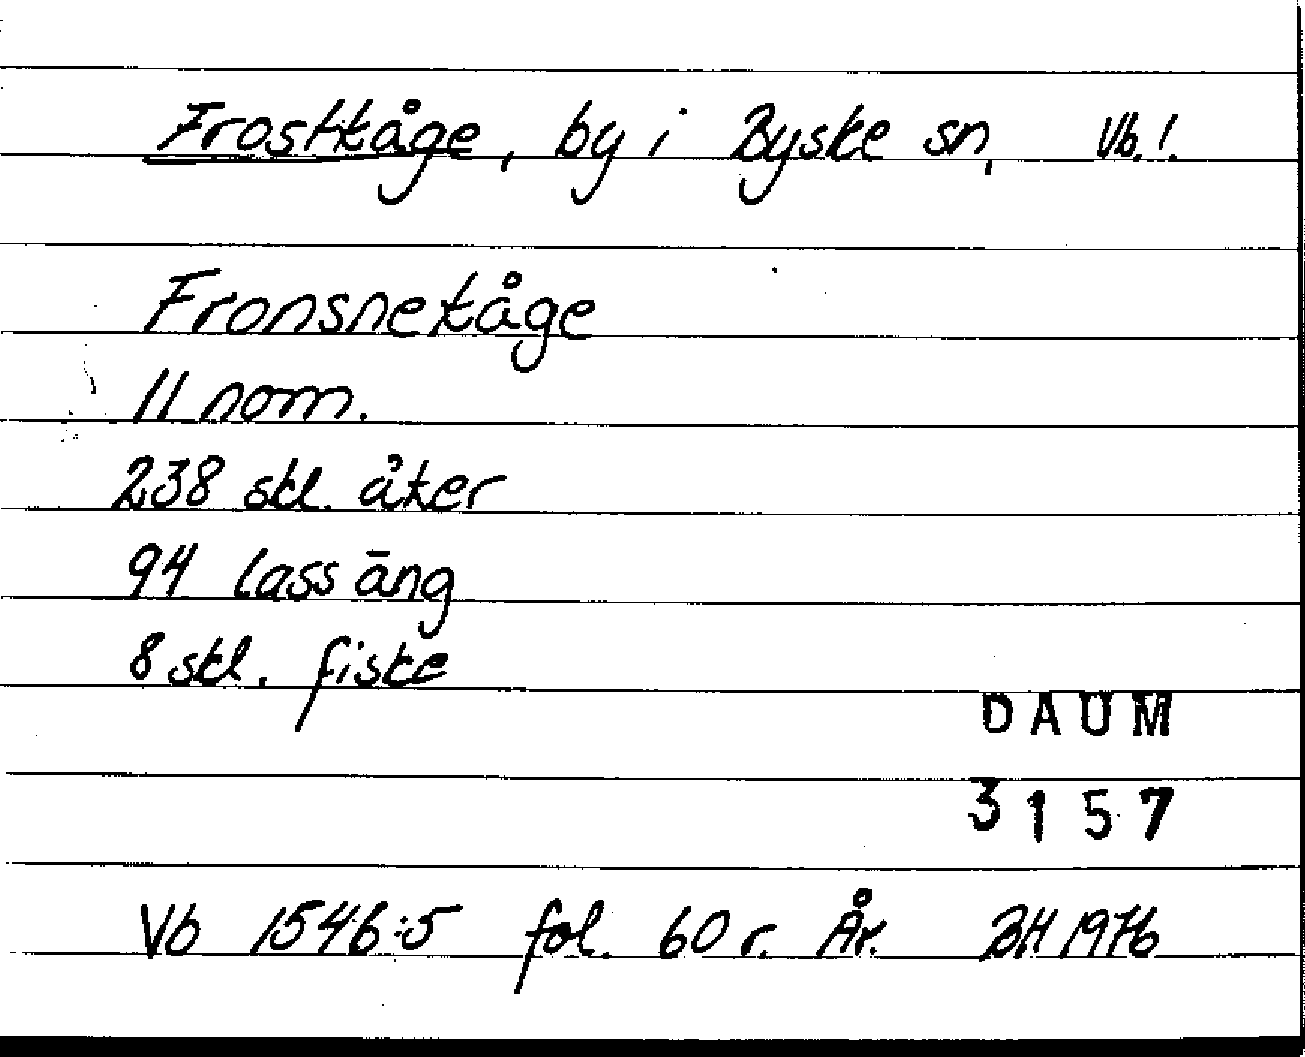 Frostkåge, by i Byske sn, Vb. l.
Fronsnekåge
11 nom.
238 skl. åker
94 lass äng
8 skl. fiske
DAUM
3157
Vb 1546:5 fol. 60 r. År. BH 1976